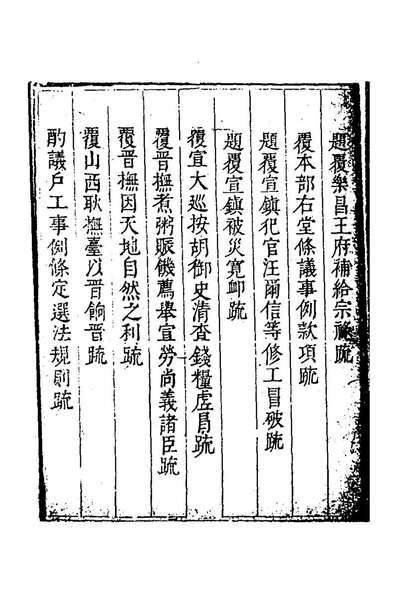 題覆樂昌王府補給宗祿疏
覆本部右堂條議事例款項疏
題覆宣鎮犯官汪爾信等修工冒破疏
題覆宣鎮被災寬卹疏
覆宣大巡按胡御史清查錢糧虛冒疏
覆晋撫煮粥賑饑薦舉宣勞尚義諸臣疏
覆晋撫因天地自然之利疏
覆山西耿撫臺以晋餉晋疏
酌議戶工事例條定選法規則疏